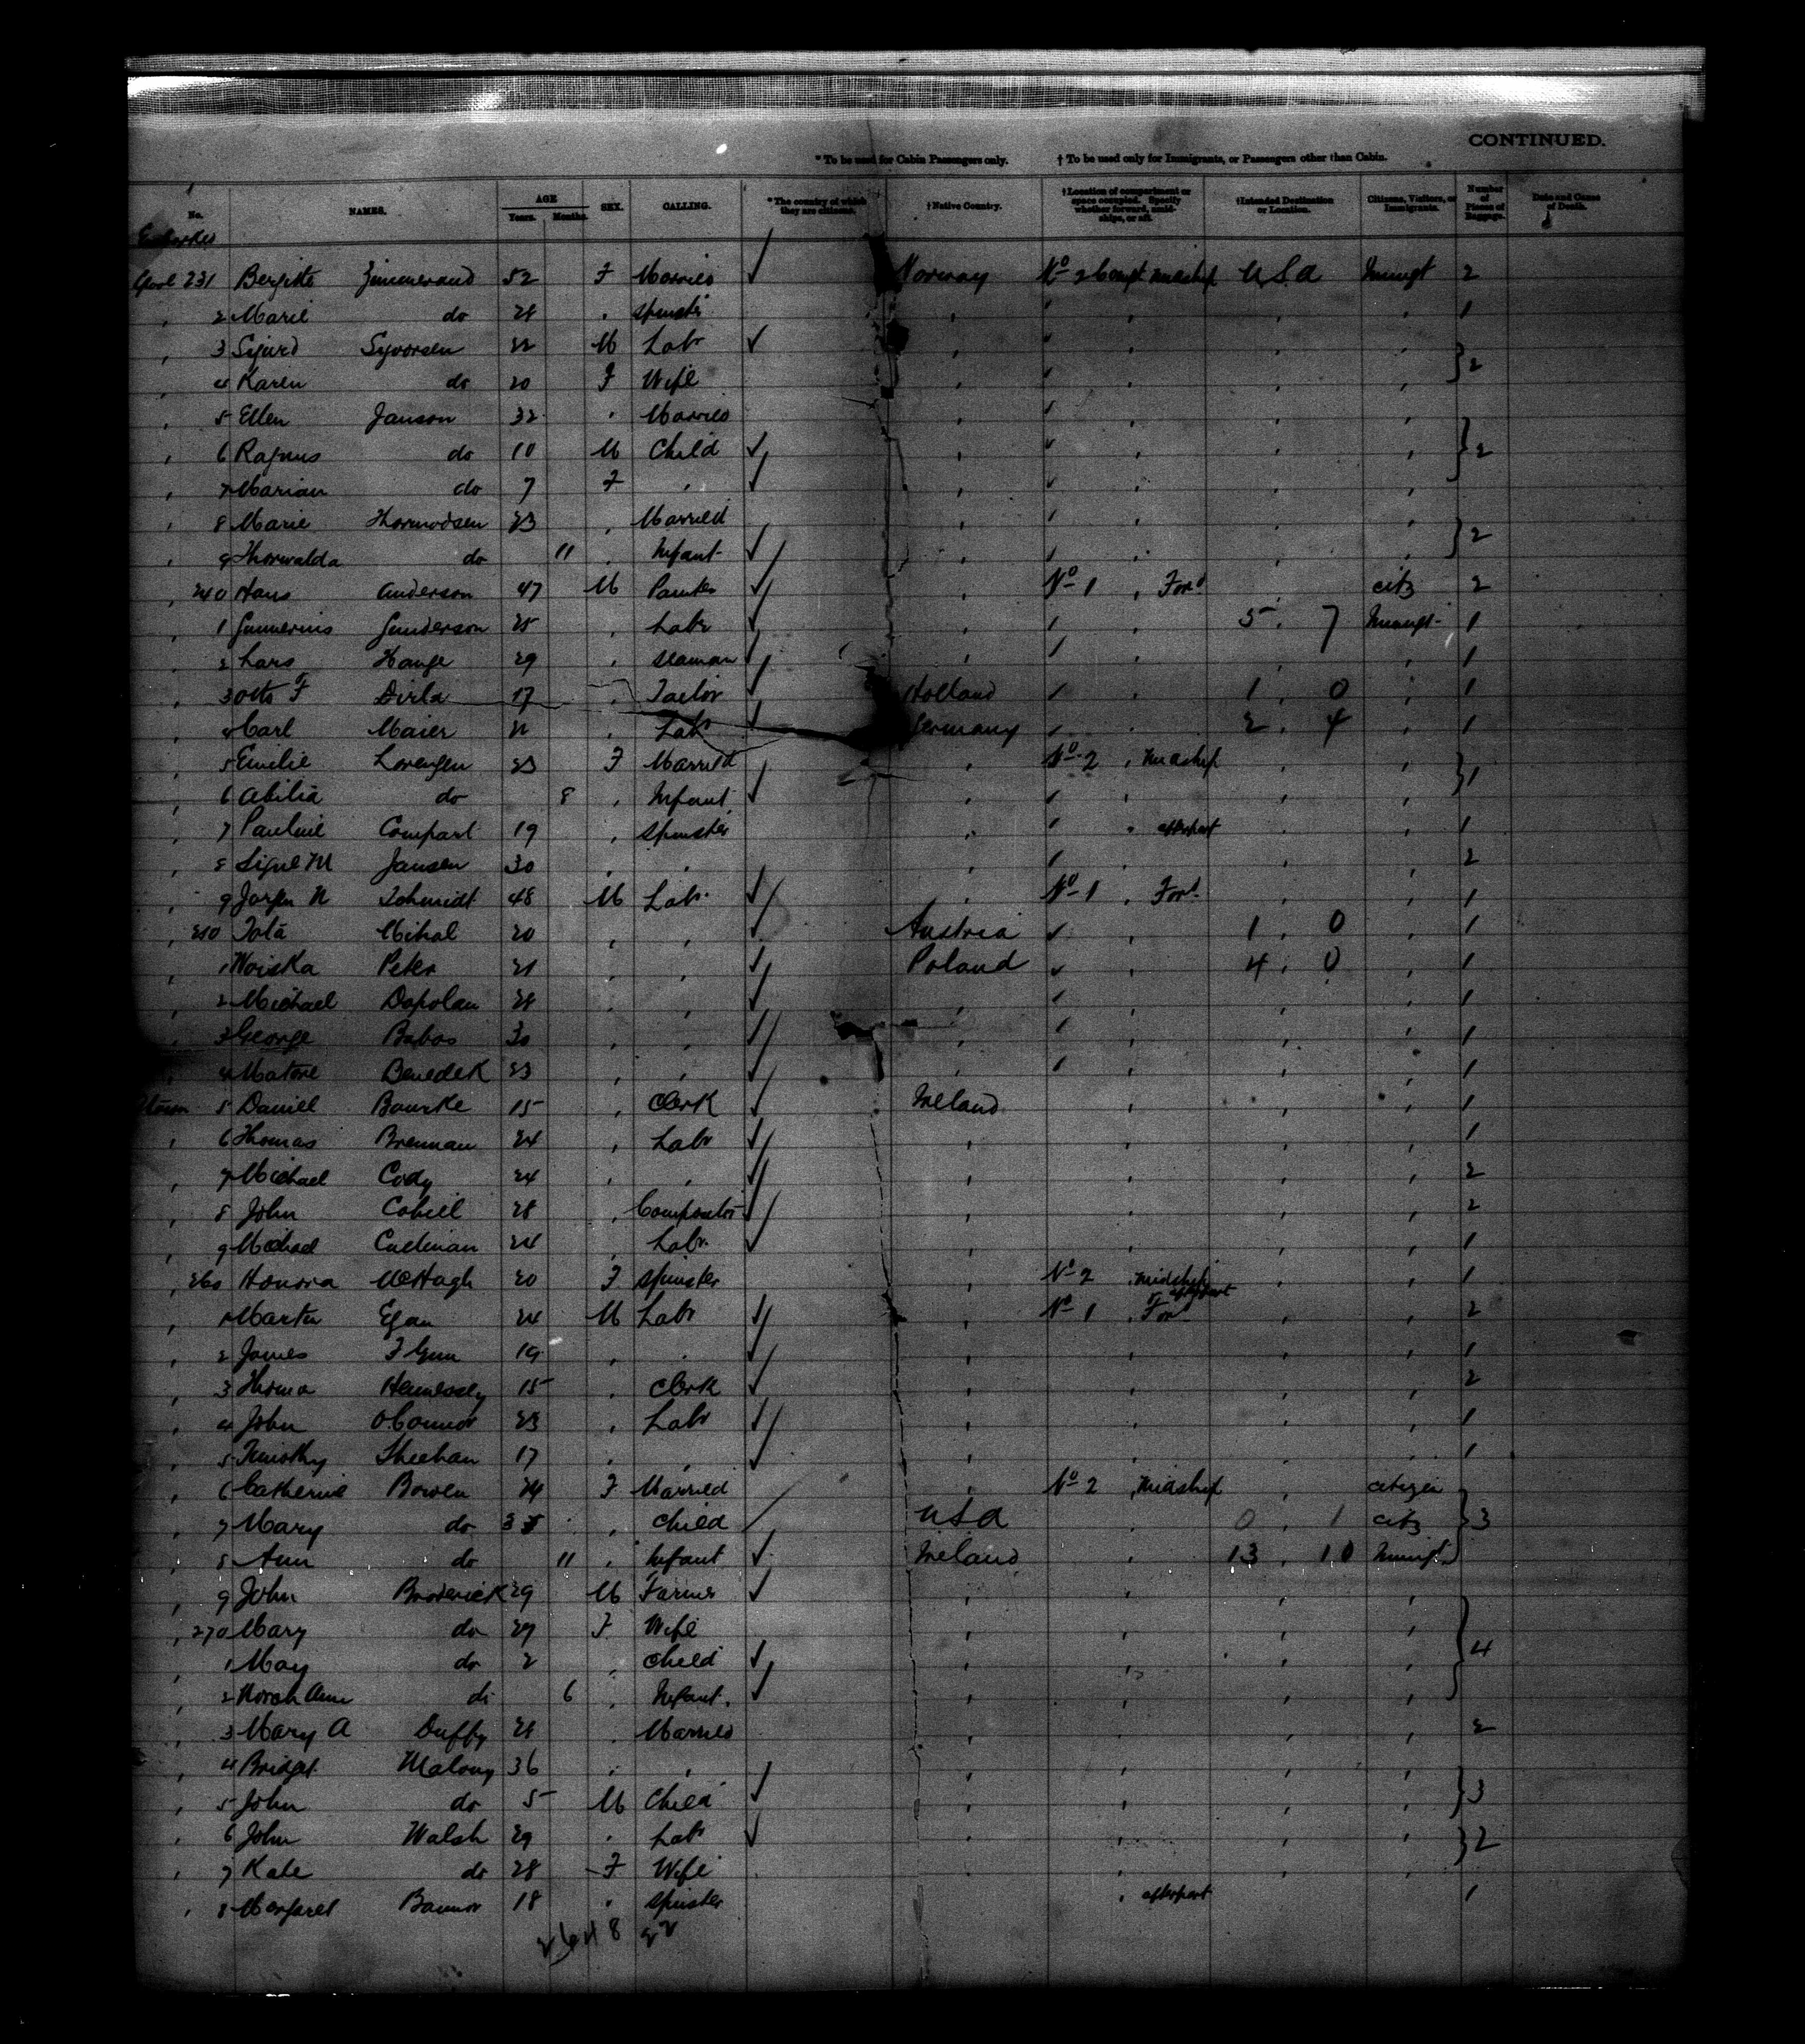 CONTINUED.
* To be used for Cabin Passengers only. † To be used only for Immigrants, or Passengers other than Cabin.
No. NAMES. AGE Years. Months. SEX. CALLING. * The country of which they are citizens. † Native Country. † Location of compartment or space occupied. Specify whether forward, midships, or aft. † Intended Destination or Location. Citizens, Visitors, or Immigrants. Number of Pieces of Baggage. Date and Cause of Death.
Embarked
231 52 F Married ✓ Norway No 2 Compt midship U.S.A Immigt 2
2 Marie do 28 " Spinster " " " " " 1
3 Sigurd Syvorsen 22 M Labr ✓ " " " " " } 2
4 Karen do 20 F Wife " " " " "
5 Ellen Janson 32 " Married " " " " "
6 Ragnus do 10 M Child ✓ " " " " " } 2
7 Marian do 7 F " ✓ " " " " "
8 Marie Thormodsen 23 " Married " " " " " } 2
9 Thorwalda do 11 " Infant ✓ " " " " "
240 Hans Anderson 47 M Painter ✓ " No 1 " For'd " citz 2
1 Gunnerius Gunderson " Labr ✓ " " " 5 . 7 Immigt 1
2 Lars Hauge 29 " Seaman ✓ " " " " " 1
3 Otto F Dirla 17 " Tailor ✓ Holland " " 1 . 0 " 1
4 Carl Maier " Labr ✓ Germany " " 2 . 4 " 1
5 Emilie Lorengen 23 F Married " No 2 " midship " " } 1
6 do 8 " Infant ✓ " " " " "
7 Pauline Compart 19 " Spinster " " " afterpart " " 1
8 M Jansen 30 " " " " " " " 2
9 N Schmidt 48 M Labr ✓ " No 1 " For'd " " 1
250 Tota Mihal 20 " " ✓ Austria " " 1 . 0 " 1
1 Woiska Peter " " ✓ Poland " " 4 . 0 " 1
2 Michael Dopolan 28 " " ✓ " " " " " 1
3 George Babos 30 " " ✓ " " " " " 1
4 Benedek 23 " " ✓ " " " " " 1
5 Daniel Bourke 15 " Clerk ✓ Ireland " " " 1
6 Thomas Brennan 24 " Labr ✓ " " " " 1
7 Michael Cody 24 " " ✓ " " " " 2
8 John Cahill 28 " Compositor ✓ " " " " 2
9 Michael Cullinan 24 " Labr ✓ " " " " 1
260 Honora McHugh 20 F Spinster " No 2 " midship afterpart " " 1
1 Martin Egan 24 M Labr ✓ " No 1 " For'd " " 2
2 James Flynn 19 " " ✓ " " " " 1
3 Thomas Hennessy 15 " Clerk ✓ " " " " 2
4 John O'Connor 23 " Labr ✓ " " " " 1
5 Timothy Sheehan 17 " " ✓ " " " " 1
6 Catherine Bowen 24 F Married " No 2 " midship " citizen
7 Mary do 3 " Child / U.S.A " 0 . 1 citz } 3
8 Ann do 11 " Infant ✓ Ireland " 13 . 10 Immigt
9 John Broderick 29 M Farmer ✓ " " " "
270 Mary do 29 F Wife " " " "
1 May do 2 " Child ✓ " " " " } 4
2 Norah Ann do 6 " Infant ✓ " " " "
3 Mary A Duffy " Married " " " " 2
4 Bridget Malony 36 " " " " " "
5 John do 5 M Child ✓ " " " " } 3
6 John Walsh 29 " Labr ✓ " " " " } 2
7 Kate do 28 F Wife " " " "
8 Margaret 18 " Spinster " afterpart 1